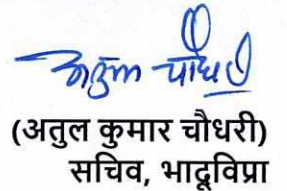 अतुल चौधरी
(अतुल कुमार चौधरी)
सचिव, भादूविप्रा